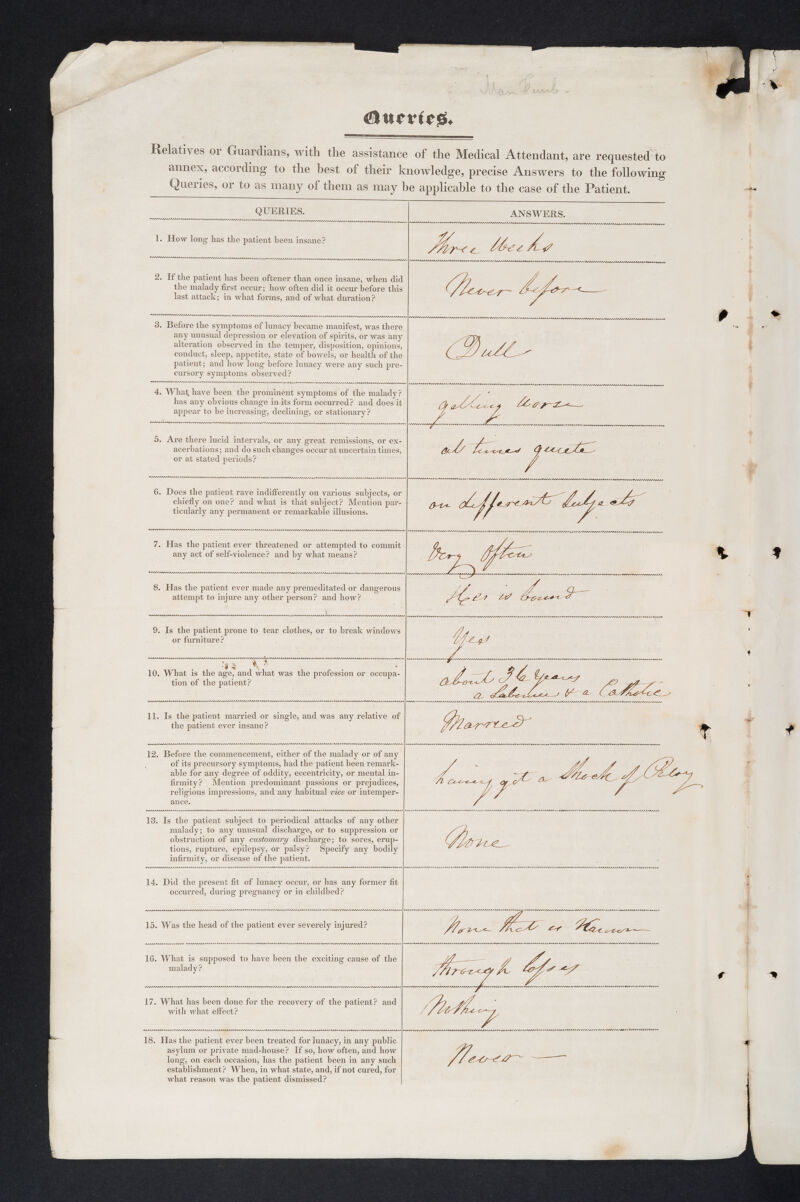 Queries.
Relatives or Guardians, with the assistance of the Medical Attendant, are requested to
annex, according to the best of their knowledge, precise Answers to the following
Queries, or to as many of them as may be applicable to the case of the Patient.
QUERIES.
ANSWERS.
1. How long has the patient been insane?
Three Weeks
2. If the patient has been oftener than once insane, when did
the malady first occur; how often did it occur before this
last attack; in what forms, and of what duration?
Never before
3. Before the symptoms of lunacy became manifest, was there
any unusual depression or elevation of spirits, or was any
alteration observed in the temper, disposition, opinions,
conduct, sleep, appetite, state of bowels, or health of the
patient; and how long before lunacy were any such pre-
cursory symptoms observed?
Dull
4. What have been the prominent symptoms of the malady?
has any obvious change in its form occurred? and does it
appear to be increasing, declining, or stationary?
getting worse
5. Are there lucid intervals, or any great remissions, or ex-
acerbations; and do such changes occur at uncertain times,
or at stated periods?
at times quiete
6. Does the patient rave indifferently on various subjects, or
chiefly on one? and what is that subject? Mention par-
ticularly any permanent or remarkable illusions.
on different Subjects
7. Has the patient ever threatened or attempted to commit
any act of self-violence? and by what means?
Very Often
8. Has the patient ever made any premeditated or dangerous
attempt to injure any other person? and how?
is bound
9. Is the patient prone to tear clothes, or to break windows
or furniture?
Yes
10. What is the age, and what was the profession or occupa-
tion of the patient?
about 36 Years
a Labourer & a Catholic
11. Is the patient married or single, and was any relative of
the patient ever insane?
Married
12. Before the commencement, either of the malady or of any
of its precursory symptoms, had the patient been remark-
able for any degree of oddity, eccentricity, or mental in-
firmity? Mention predominant passions or prejudices,
religious impressions, and any habitual vice or intemper-
ance.
having got a Shock of
13. Is the patient subject to periodical attacks of any other
malady; to any unusual discharge, or to suppression or
obstruction of any customary discharge; to sores, erup-
tions, rupture, epilepsy, or palsy? Specify any bodily
infirmity, or disease of the patient.
None
14. Did the present fit of lunacy occur, or has any former fit
occurred, during pregnancy or in childbed?
15. Was the head of the patient ever severely injured?
None that is Known
16. What is supposed to have been the exciting cause of the
malady?
through losses
17. What has been done for the recovery of the patient? and
with what effect?
Nothing
18. Has the patient ever been treated for lunacy, in any public
asylum or private mad-house? If so, how often, and how
long, on each occasion, has the patient been in any such
establishment? When, in what state, and, if not cured, for
what reason was the patient dismissed?
Never